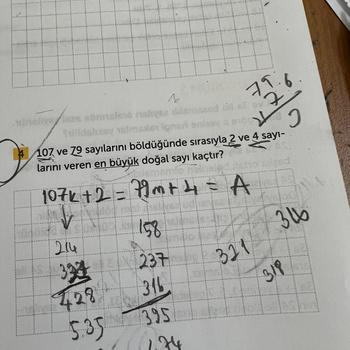 79.6
4 107 ve 79 sayılarını böldüğünde sırasıyla 2 ve 4 sayı-
larını veren en büyük doğal sayı kaçtır?
107k+2 = 79m+4 = A
214
158
428
237
316
535
395
321
316
318